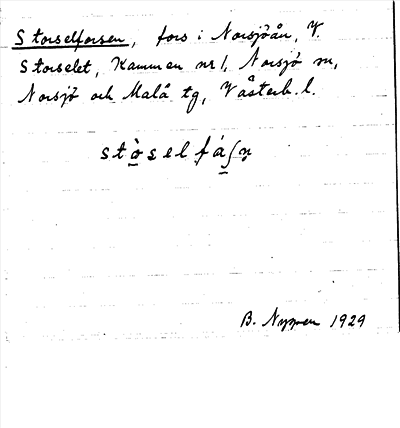 Storselforsen, fors i Norsjöån, V.
Storselet, Kamman nr 1, Norsjö sn,
Norsjö och Malå tg, Västerb. l.
stò̱selfá̱ʃn̥
B. Nyman 1929